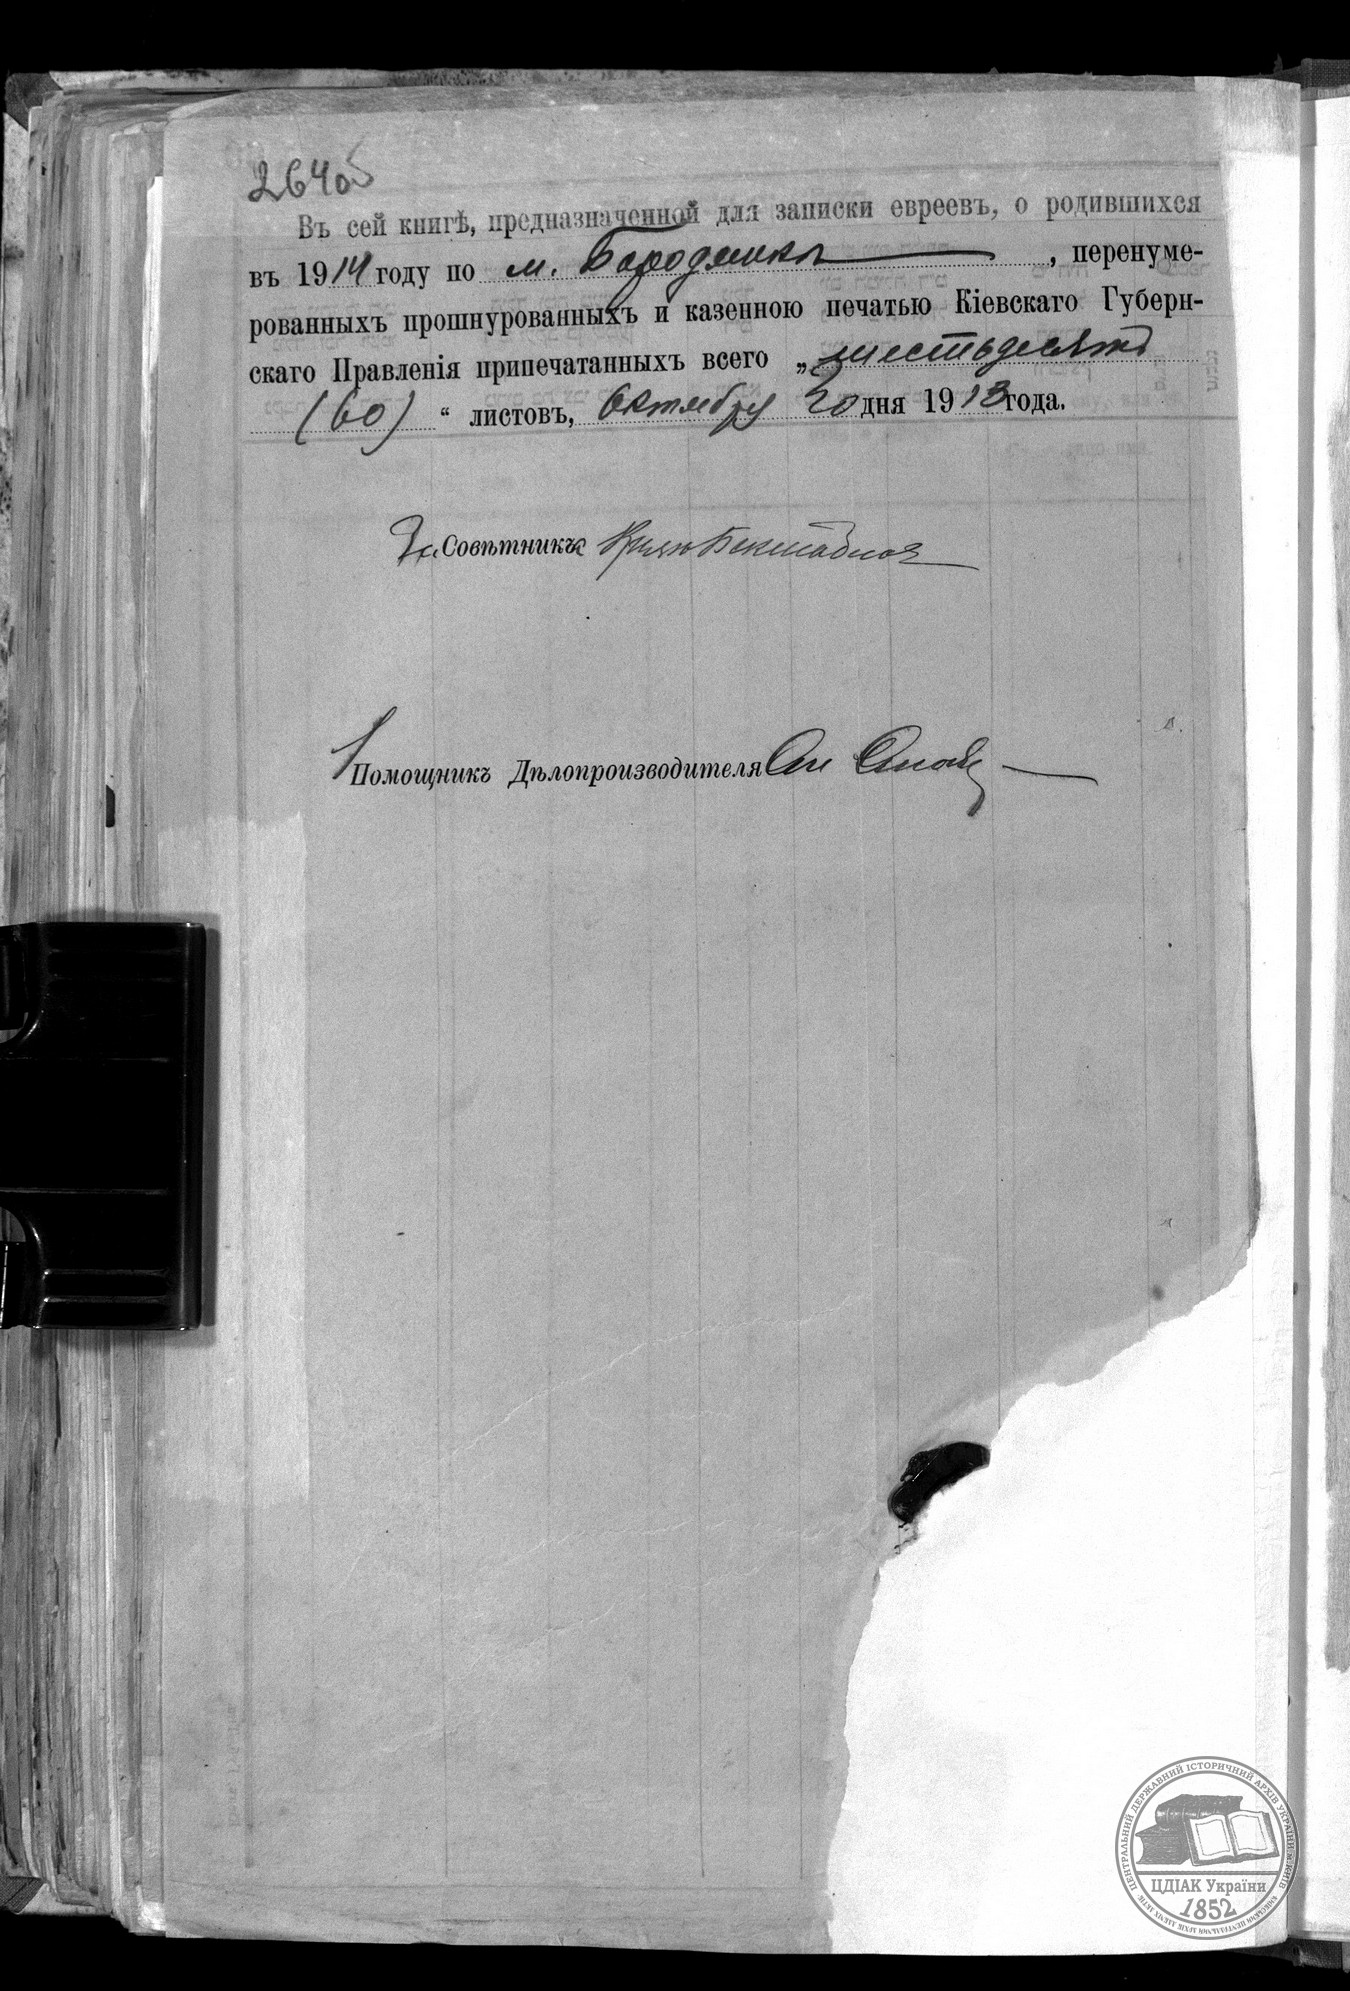 264об
Въ сей книгѣ, предназначенной для записки евреевъ, о родившихся
въ 1914 году по м. Бородянкѣ, перенуме-
рованныхъ прошнурованныхъ и казенною печатью Кіевскаго Губерн-
скаго Правленія припечатанныхъ всего „шестьдесятъ
(60)“ листовъ, Октября 20 дня 1913 года.
За Совѣтника
Помощникъ Дѣлопроизводителя
ЦЕНТРАЛЬНИЙ ДЕРЖАВНИЙ ІСТОРИЧНИЙ АРХІВ УКРАЇНИ м.КИЇВ
ЦДІАК України
1852